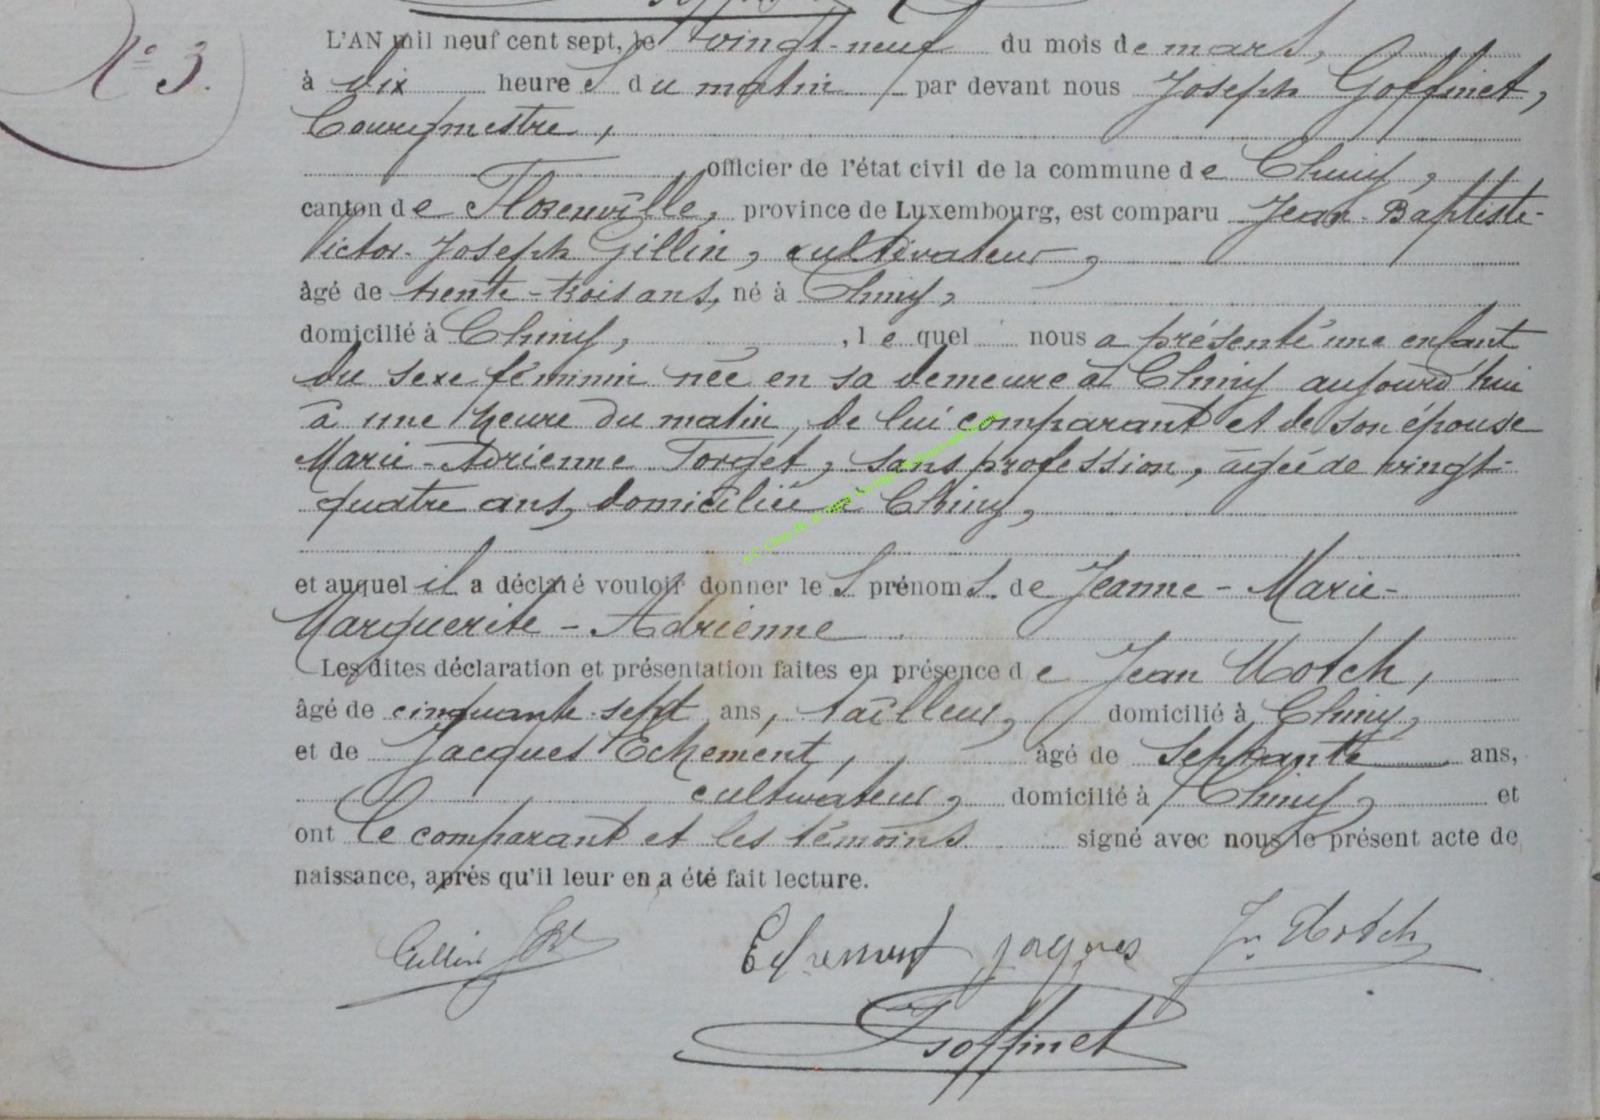 N° 3.
L'AN mil neuf cent sept, le vingt-neuf du mois de mars,
à dix heures du matin, par devant nous Joseph Goffinet,
Bourgmestre,
officier de l'état civil de la commune de Chiny,
canton de Florenville, province de Luxembourg, est comparu Jean-Baptiste-
Victor-Joseph Gillin, cultivateur,
âgé de trente-trois ans, né à Chiny,
domicilié à Chiny, lequel nous a présenté une enfant
du sexe féminin née en sa demeure à Chiny aujourd'hui
à une heure du matin, de lui comparant et de son épouse
Marie-Adrienne Forget, sans profession, âgée de vingt-
quatre ans, domiciliée à Chiny,
et auquel il a déclaré vouloir donner les prénoms de Jeanne-Marie-
Marguerite-Adrienne
Les dites déclaration et présentation faites en présence de Jean
âgé de cinquante-sept ans, tailleur, domicilié à Chiny,
et de Jacques Echement, âgé de septante ans,
cultivateur, domicilié à Chiny, et
ont le comparant et les témoins signé avec nous le présent acte de
naissance, après qu'il leur en a été fait lecture.
Gillin Echement Jacques
Goffinet